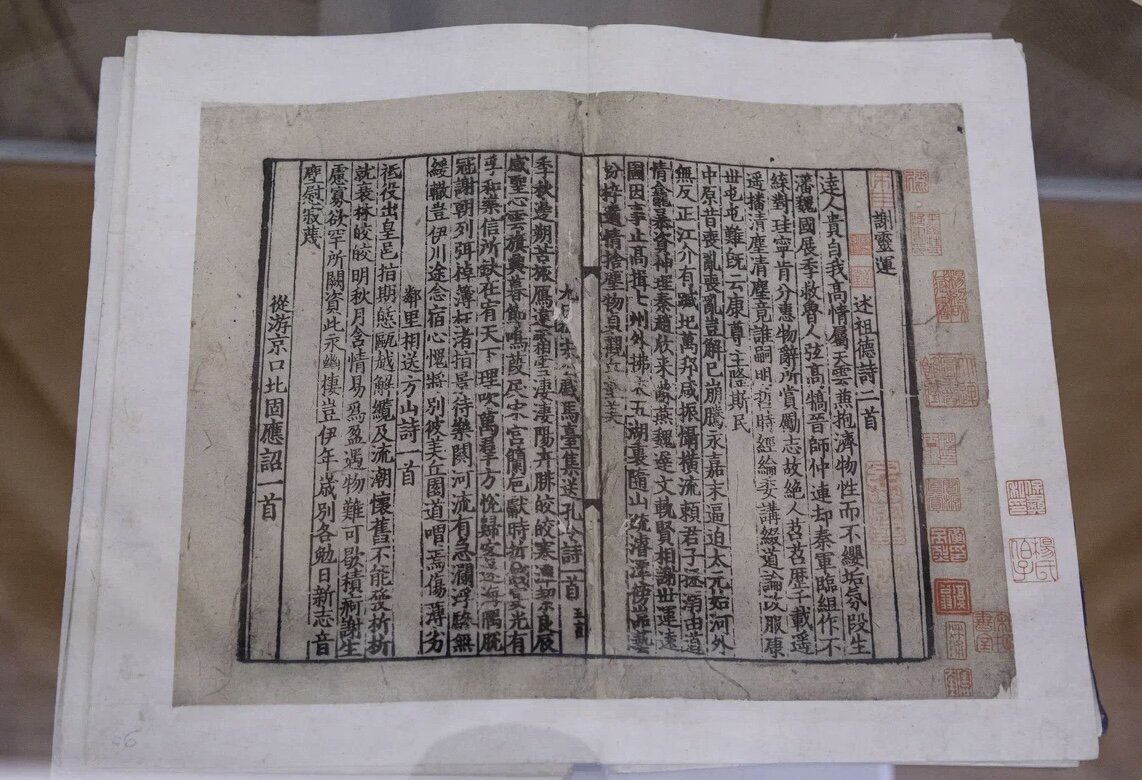 謝靈運
述祖德詩二首
達人貴自我高情屬天雲兼抱濟物性而不纓垢氛段生
藩魏國展季救魯人弦高犒晉師仲連却秦軍臨組作不
緤對珪寧肯分惠物辭所賞勵志故絕人苕苕歷千載遥
遥播清塵清塵竟誰嗣明哲時經綸委講綴道論改服康
世屯屯難旣云康尊主隆斯民
中原昔喪亂喪亂豈解已崩騰永嘉末逼迫太元始河外
無反正江介有蹴圮萬邦咸振懾橫流賴君子拯溺由道
情龕暴資神理秦趙欣來蘇燕魏遲文軌賢相謝世運遠
圖因事止高揖七州外拂衣五湖裏隨山疏濬潭傍巖藝
枌梓遺情捨塵物貞觀丘壑美
九 戲馬臺集送孔令詩一首
季秋邊朔苦旅鴈違霜雪淒淒陽卉腓皎皎寒潭絜良辰
感聖心雲旗興暮節鳴葭戾朱宮蘭巵獻時哲餞宴光有
孚和樂信所缺在宥天下理吹萬羣方悅歸客遂海隅脫
冠謝朝列弭棹薄枉渚指景待樂闋河流有急瀾浮驂無
緩轍豈伊川途念宿心愧將別彼美丘園道喟焉傷薄劣
鄰里相送方山詩一首
祗役出皇邑指期憩甌越解纜及流潮懷舊不能發析析
就衰林皎皎明秋月含情易爲盈遇物難可歇積痾謝生
慮寡欲罕所闕資此永幽棲豈伊年歲別各勉日新志音
塵慰寂蔑
從游京口北固應詔一首